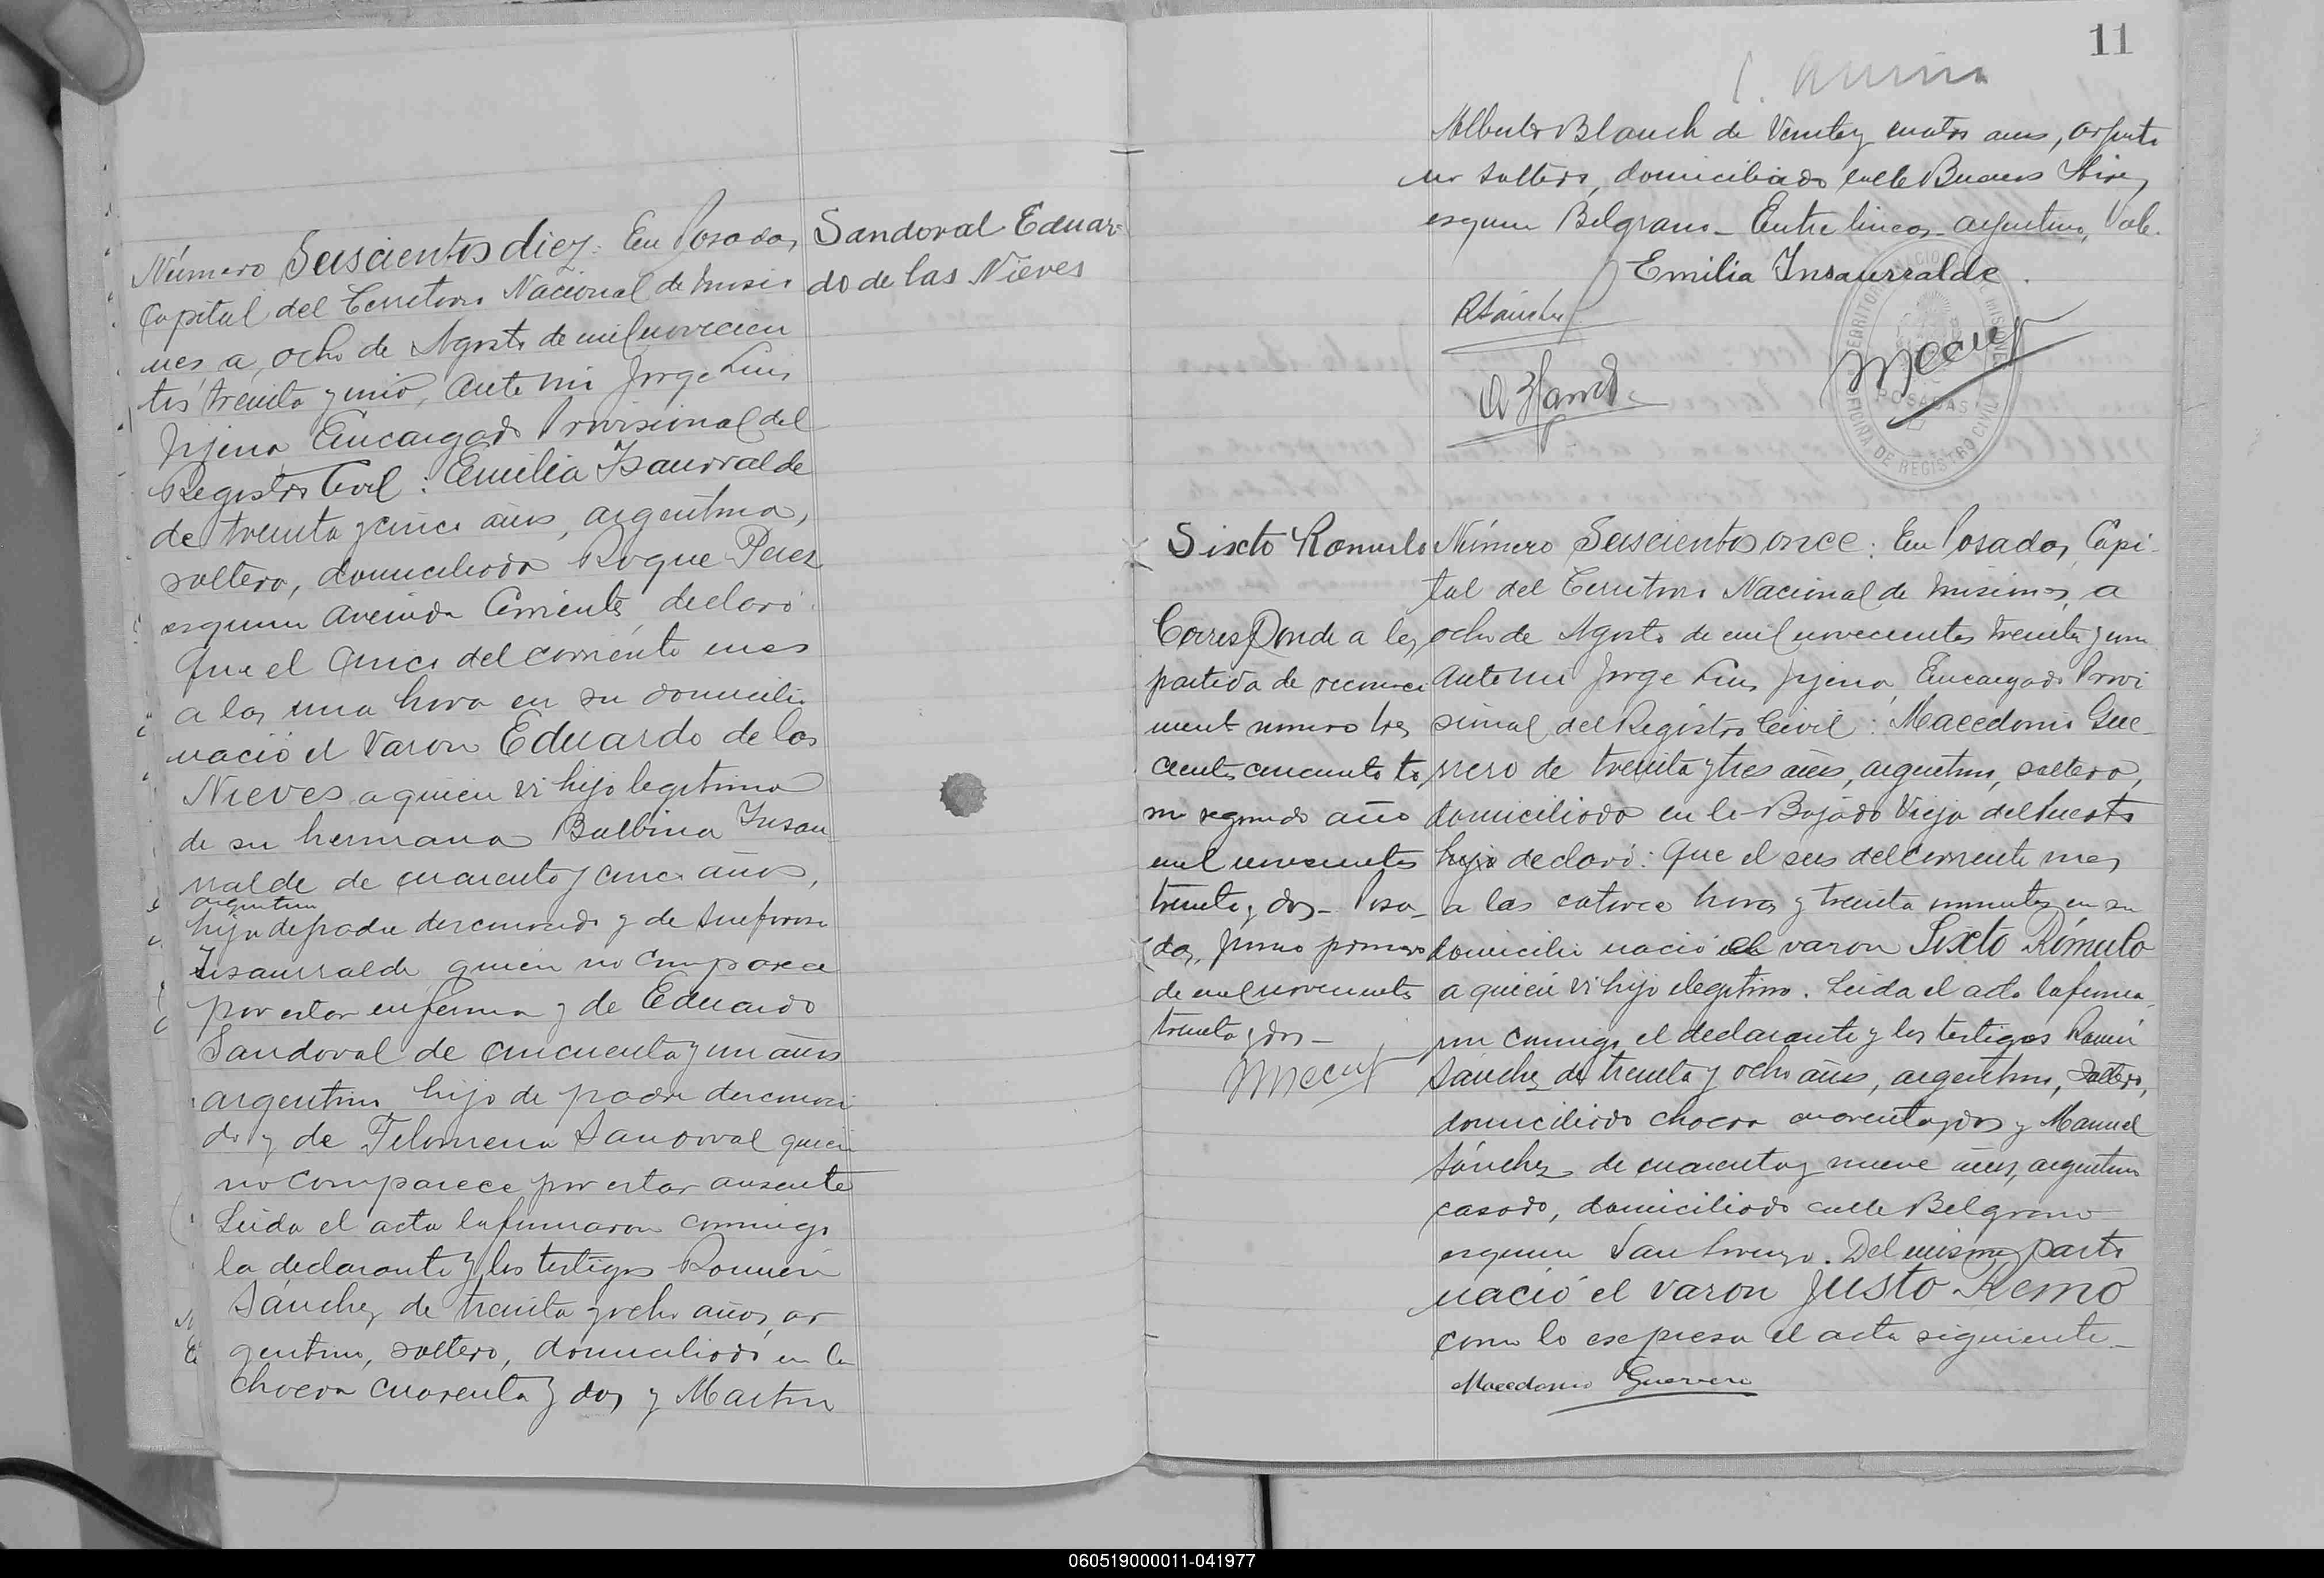 Número Seiscientos diez: En Posadas
Capital del Territorio Nacional de Misio
nes a ocho de Agosto de mil novecien
tos treinta y uno, ante mi Jorge Luis
Encargado Provisional del
Registro Civil: Emilia Isaurralde
de treinta y cinco años, argentina,
soltera, domiciliada Roque Perez
esquina avenida Corrientes, declaró:
Que el cinco del corriente mes
a las una hora en su domicilio
nació el varon Eduardo de las
Nieves a quien vi hijo legitimo
de su hermana Balbina Insau-
rralde de cuarenta y cinco años,
argentina
hija de padre desconocido y de Sinforosa
Insaurralde quien no comparece
por estar enferma y de Eduardo
Sandoval de cincuenta y un años
argentino hijo de padre desconoci
do y de Filomena Sandoval quien
no comparece por estar ausente
Leida el acta la firmaron conmigo
la declarante y los testigos Ramón
Sánchez de treinta y ocho años, ar
gentino, soltero, domiciliado en la
chacra cuarenta y dos y Martin
Sandoval Eduar-
do de las Nieves
11
Alberto Blanch de Veinte y cuatro años, argenti
no soltero, domiciliado calle Buenos Aires
esquina Belgrano - Entre lineas - argentina, Vale.
Emilia Insaurralde.
RSánchez
TERRITORIO NACIONAL DE MISIONES
POSADAS
OFICINA DE REGISTRO CIVIL
Sixto Romulo
Corresponde a la
partida de reconoci
miento numero tres
cientos cincuenta to
mo segundo año
mil novecientos
treinta y dos - Posa-
das, Junio primero
de mil novecientos
treinta y dos -
Número Seiscientos once: En Posadas, Capi-
tal del Territorio Nacional de Misiones, a
ocho de Agosto de mil novecientos treinta y uno
ante mi Jorge Luis Encargado Provi
sional del Registro Civil: Macedonio Gue-
rrero de treinta y tres años, argentino, soltero,
domiciliado en la Bajada Vieja del Puerto
declaró: Que el seis del corriente mes
a las catorce horas y treinta minutos en su
domicilio nació el varon Sixto Rómulo
a quien vi hijo ilegitimo. Leida el acta la firma
ron conmigo el declarante y los testigos Ramón
Sánchez de treinta y ocho años, argentino, soltero,
domiciliado chacra cuarenta y dos y Manuel
Sánchez de cuarenta y nueve años, argentino
casado, domiciliado calle Belgrano
esquina San Lorenzo. Del mismo parto
nació el varon Justo Remo
como lo expresa el acta siguiente -
Macedonio Guerrero
060519000011-041977